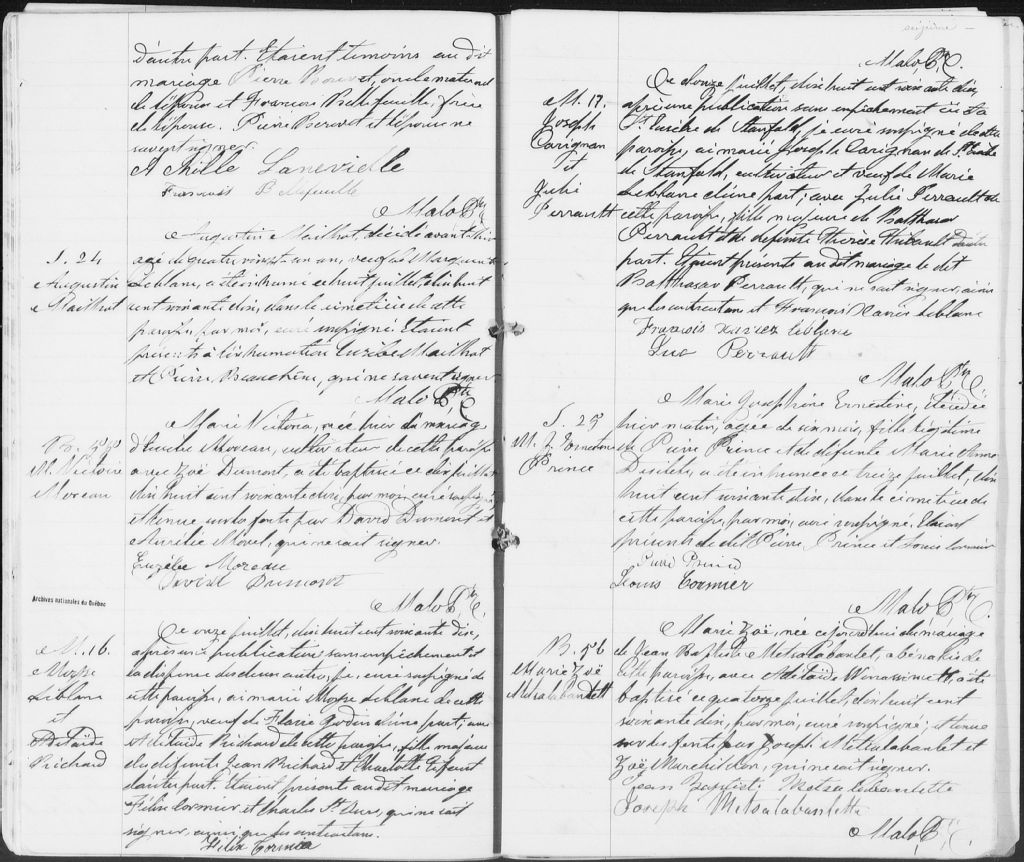 d'autre part. Etaient témoins au dit
mariage Pierre Bourret, oncle maternel
de l'épouse et François Bellefeuille, frère
de l'épouse. Pierre et l'épouse ne
savent signer.
Achille Laneville
François Bellefeuille
Malo Ptre C.
S. 24
Augustin
Mailhot
Augustin Mailhot, décédé avant-hier
agé de quatre vingt-un an, veuf de Marguerite
Leblanc, a été inhumé ce huit juillet, dix huit
cent soixante dix, dans le cimetière de cette
paroisse, par moi, curé soussigné. Etaient
présents à l'inhumation Eusèbe Mailhot
et Pierre Beauchêne, qui ne savent signer
Malo Ptre C
B. 55
M. Victoire
Moreau
Marie Victoria, née hier du mariage
d' Moreau, cultivateur de cette paroisse
avec Zoë Dumont, a été baptisée ce dix juillet
dix huit cent soixante dix, par moi, curé soussigné,
et tenue sur les fonts par David Dumont et
Aurélie Morel, qui ne sait signer.
Moreau
David Dumont
Malo Ptre C.
Archives nationales du Québec
M. 16.
Moyse
Leblanc
et
Adélaïde
Richard
Ce onze juillet, dix huit cent soixante dix,
après une publication sans empêchement et
la dispense des deux autres, je, curé soussigné de
cette paroisse, ai marié Moyse Leblanc de cette
paroisse, veuf de Flavie Gaudin d'une part; avec
Adélaïde Richard de cette paroisse, fille majeure
des défunts Jean Richard et Charlotte
d'autre part. Etaient présents au dit mariage
Félix Cormier et Charles St. , qui ne sait
signer, ainsi que les contractans.
Félix Cormier
seizième
Malo Ptre C.
M. 17.
Joseph
Carignan
et
Julie
Perrault
Ce douze juillet, dix huit cent soixante dix,
après une publication sans empêchement ici et à
St. Eusèbe de Stanfold, je curé soussigné de cette
paroisse, ai marié Joseph Carignan de St. Eusèbe
de Stanfold, cultivateur et veuf de Marie
Leblanc d'une part; avec Julie Perrault de
cette paroisse, fille majeure de Balthasar
Perrault et de défunte Thérèse Thibault d'autre
part. Etaient présents au dit mariage le dit
Balthasar Perrault, qui ne sait signer, ainsi
que les contractans et François Xavier Leblanc
François Xavier Leblanc
Luc Perrault
Malo Ptre C
S. 25
M. J. Ernestine
Prince
Marie Joséphine Ernestine, décédée
hier matin, agée de six mois, fille légitime
de Pierre Prince et de défunte Marie Anne
, a été inhumée ce treize juillet, dix
huit cent soixante dix, dans le cimetière de
cette paroisse, par moi, curé soussigné. Etaient
présents le dit Pierre Prince et Louis Cormier
Pierre Prince
Louis Cormier
Malo Ptre C.
B. 56
Marie Zoë
Metsalabanlett
Marie Zoë, née ce jourd'hui du mariage
de Jean Baptiste Metsalabanlet, abénakis de
cette paroisse, avec Adélaïde , a été
baptisée ce quatorze juillet, dix huit cent
soixante dix, par moi, curé soussigné; et tenue
sur les fonts par Joseph Metsalabanlet et
Zoë Marchildon, qui ne sait signer.
Jean Baptiste Metsalabanlette
Joseph Metsalabanlette
Malo Ptre C.